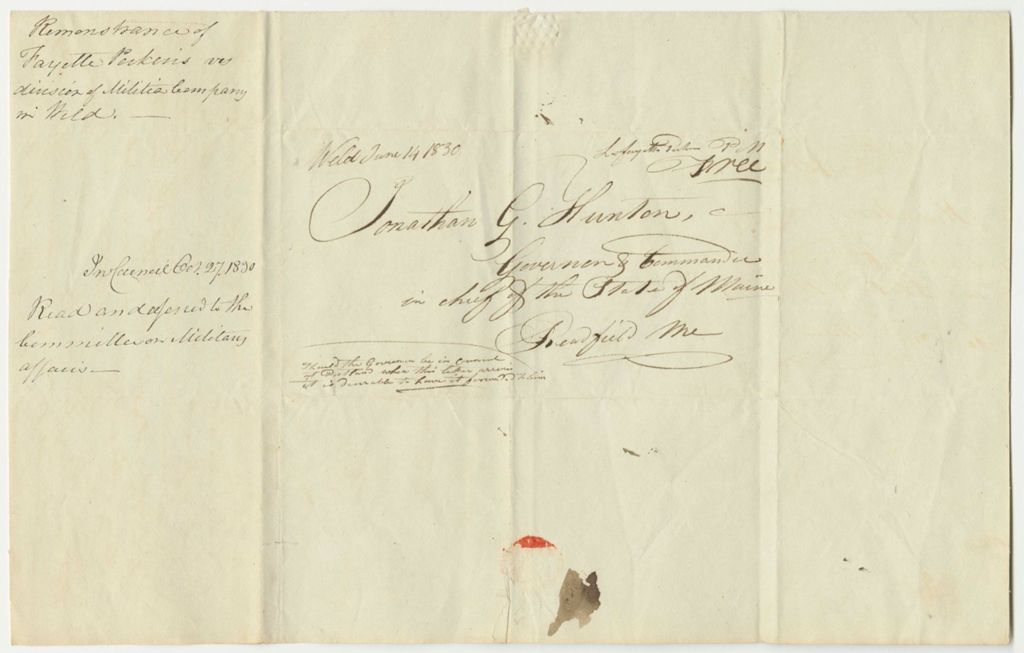 Remonstrance of
Fayette Perkins vs
division of Militia Company
in Weld.
In Council Oct. 27. 1830
Read and referred to the
Committee on Military
affairs.
Weld June 14 1830
Lafayette Perkins P. M
Free
Jonathan G. Hunton,
Governor & Commander
in chief of the State of Maine
Readfield Me
Should the Governor be in council
at Portland when this letter arrives
it is desirable to have it forwarded to him